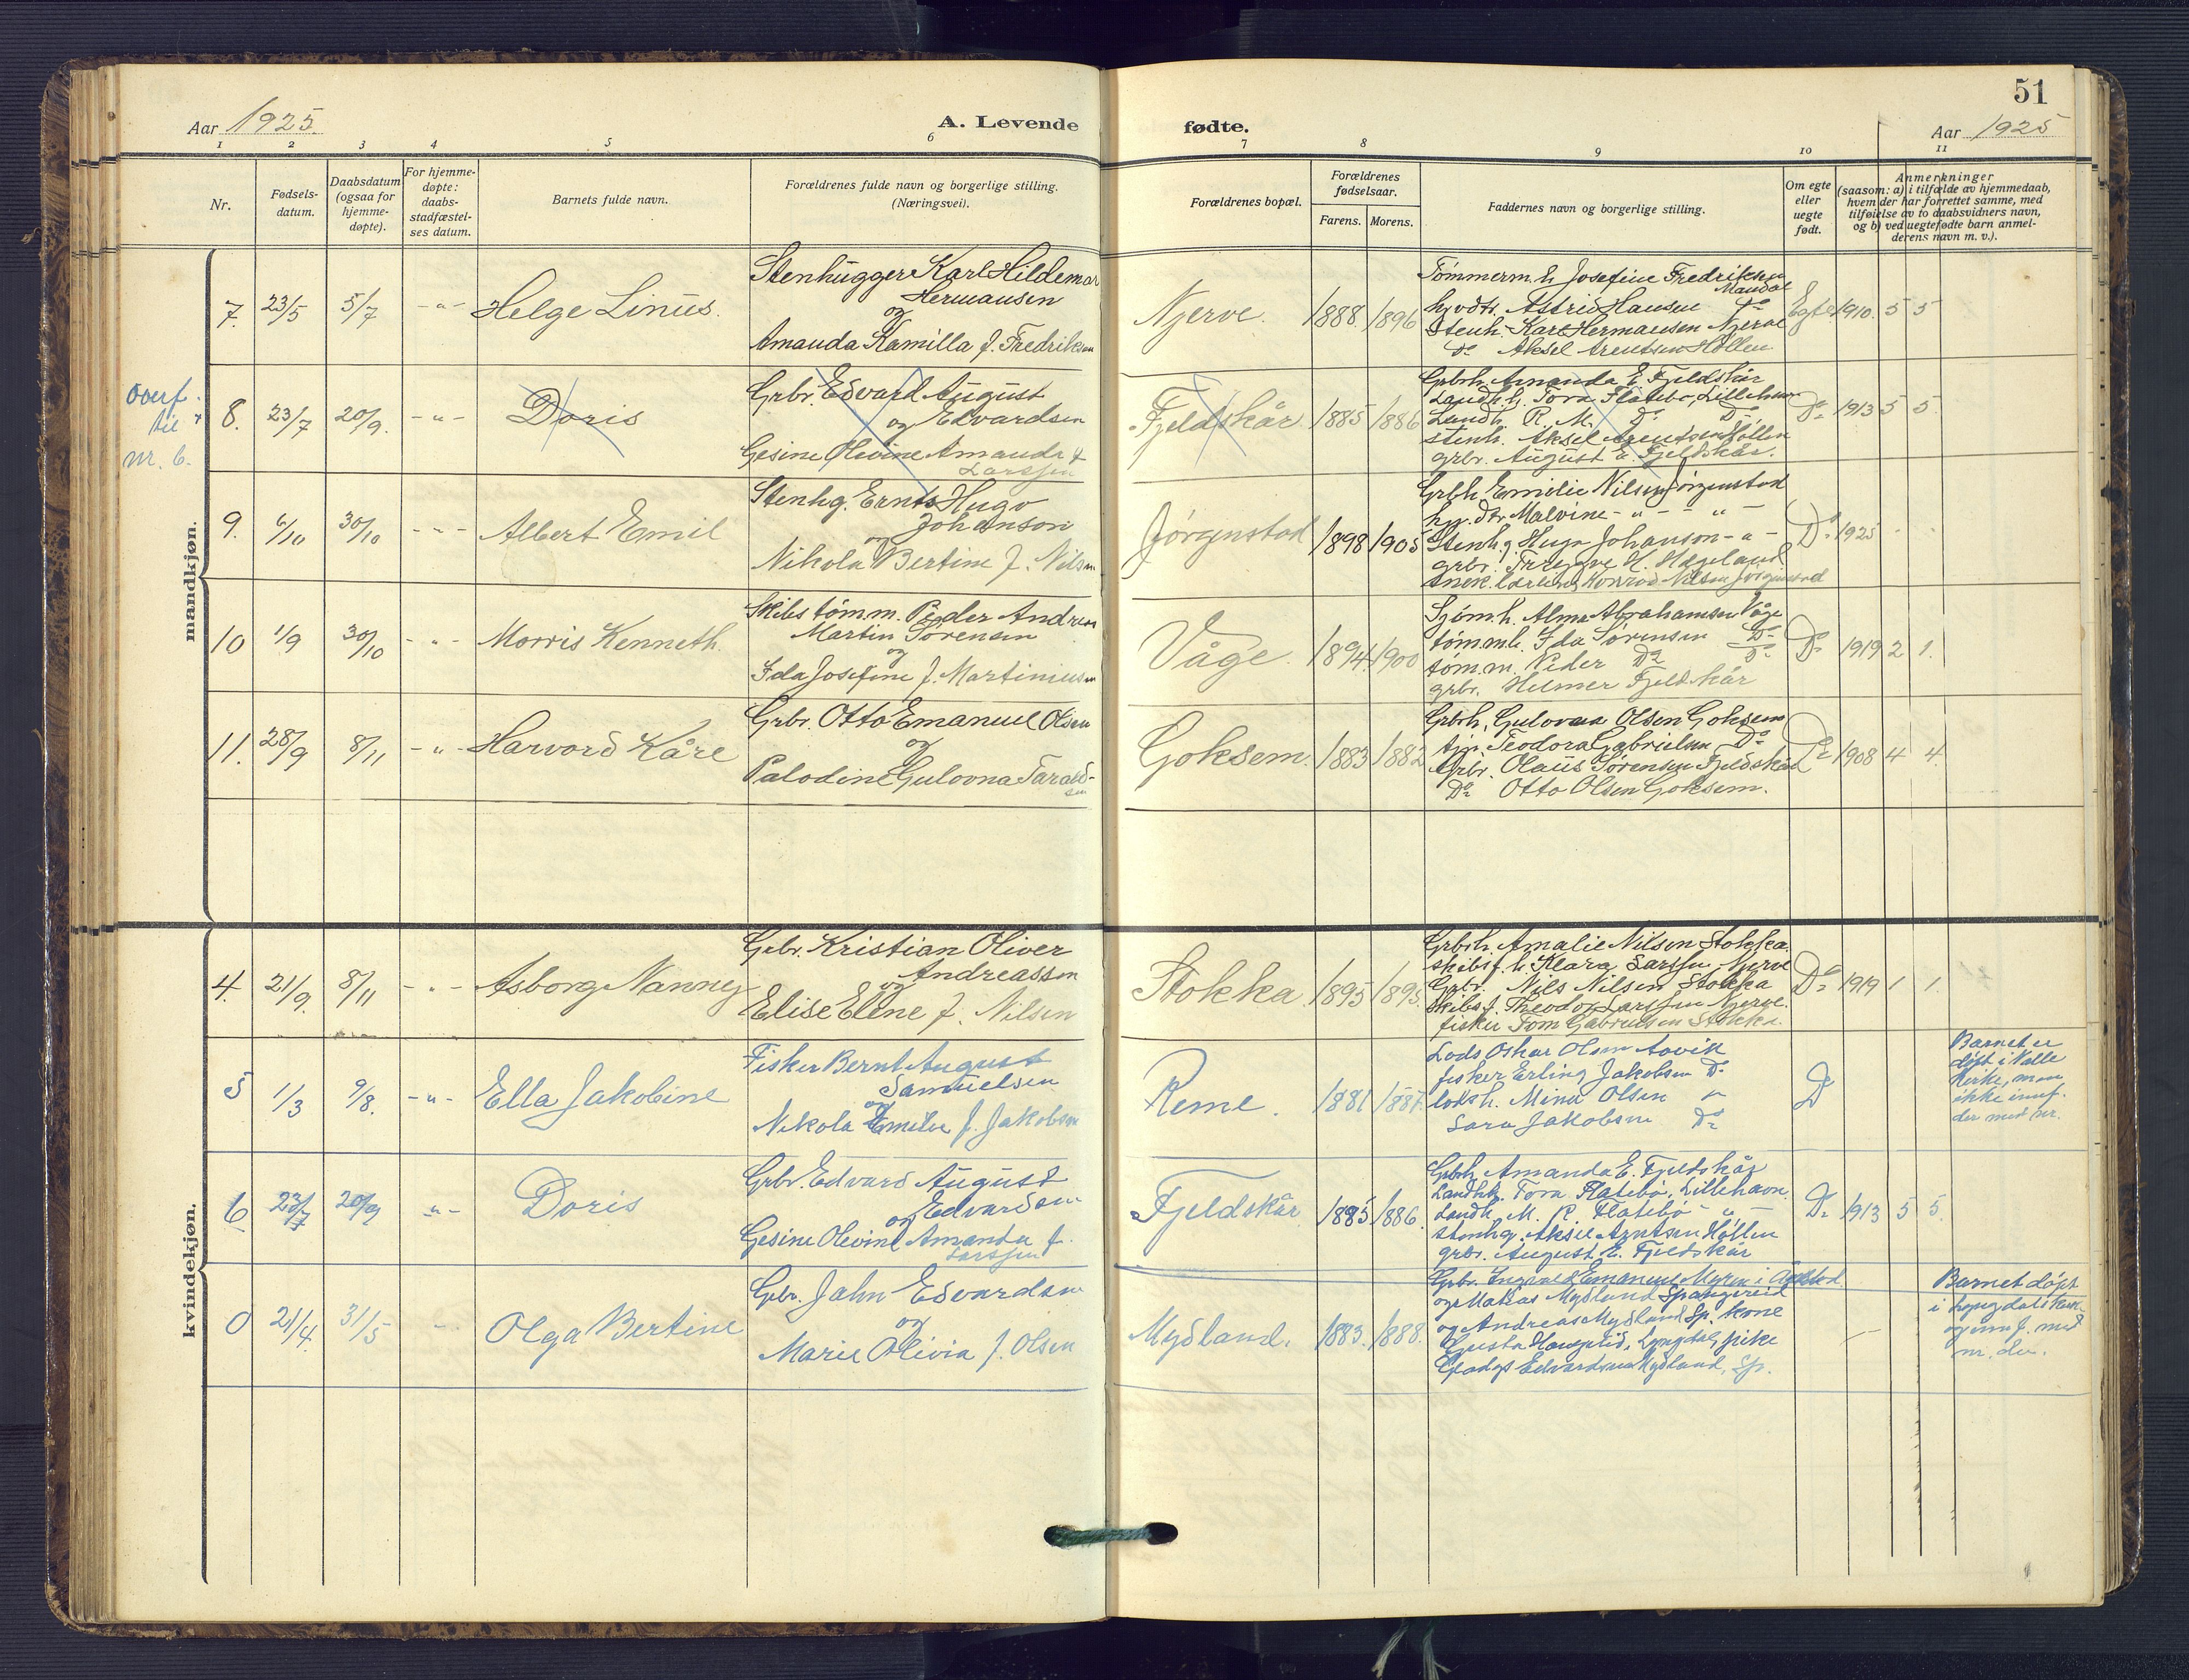 51
Aar 1925.
A. Levende
fødte.
Aar 1925
1 2 3 4 5 6 7 8 9 10 11
Nr.
Fødsels-
datum.
Daabsdatum
(ogsaa for
hjemme-
døpte).
For hjemme-
døpte:
daabs-
stadfæstel-
ses datum.
Barnets fulde navn.
Forældrenes fulde navn og borgerlige stilling.
(Næringsvei).
Forældrenes bopæl.
Forældrenes
fødselsaar.
Farens. Morens.
Faddernes navn og borgerlige stilling.
Om egte
eller
uegte
født.
Anmerkninger
(saasom: a) i tilfælde av hjemmedaab,
hvem der har forrettet samme, med
tilføielse av to daabsvidners navn,
og b) ved uegtefødte barn anmel-
derens navn m. v.).
mandkjøn.
7. 23/5 5/7 -"- Helge Linus.
Stenhugger Karl Hildemar
Hermansen
og
Amanda Kamilla f. Fredriksen
Njerve. 1888. 1896
Tømmerm. h. Josefine Fredriksen
Mandal
hjvdtr. Astrid Hansen Do
Stenh. Karl Hermansen Njerve
Do Aksel Arentsen Höllen
Egte 1910. 5 5
overf.
til
nr. 6.
8. 23/7 20/9. -"- Doris
Grbr. Edvard August
og Edvardsen
Gesine Olevine Amanda f
Larssen
Fjeldskår 1885 1886
Grbrh. Amanda E. Fjeldskår
Landh. h. Tora Flatebø, Lillehavn
Landh. R. M. Do Do
Stenh. Aksel Arentsen Höllen
grbr. August E. Fjeldskår.
Do 1913 5 5.
9. 6/10 30/10 -"- Albert Emil
Stenhg. Ernts Hugo
Johanson
og
Nikola Bertine f. Nilsen
Jörgenstad 1898 1905
Grbh. Emilie Nilsen Jörgenstad
hj. dtr. Malvine -"- -"-
Stenhg. Hugo Johanson -"-
grbr. Trygve H. Hageland
Konrad Nilsen Jörgenstad
Do 1925 - -
10 1/9 30/10 -"- Morris Kenneth.
Skibstömm. Peder Andreas
Martin Sörensen
og
Ida Josefine f. Martiniusen
Våge. 1894. 1900
Sjömh. Alma Abrahamsen Våge
tömmh. Ida Sörensen Do
tömm. Peder Do Do
grbr. Helmer Fjeldskår
Do 1919 2 1.
11. 28/9 8/11 -"- Harvord Kåre
Grbr. Otto Emanuel Olsen
og
Palodine Gulovna Tarald-
sen
Goksem. 1883 1882
Grbrh. Gulovna Olsen Goksem
tjp. Teodora Gabrielsen Do
Grbr. Olaus Sörensen Fjeldskår
Do Otto Olsen Goksem.
Do 1908 4 4.
kvindekjøn.
4. 21/9. 8/11 -"- Asborg Nanney
Grbr. Kristian Oliver
Andreassen
og
Elise Elene f. Nilsen
Stokka. 1895 1895.
Grbrh. Amalie Nilsen Stokka.
skibsf. h. Klara Larssen Njerve
Grbr. Nils Nilsen Stokka
Skibsf. Theodor Larssen Njerve.
fisker Tom Gabrielsen Stokka.
Do 1919 1 1.
5 1/3 9/8. -"- Ella Jakobine
Fisker Bernt August
Samuelsen
og
Nikola Emilie f. Jakobsen
Reme. 1881 1887.
Lods Oskar Olsen Aavik
fisker Erling Jakobsen Do
lodsh. Mina Olsen "
Sara Jakobsen Do
Do
Barnet er
döpt i Valle
kirke, men
ikke innf.
der med nr.
6 23/7 20/9 -"- Doris
Grbr. Edvard August
og Edvardsen
Gesine Olevine Amanda f.
Larssen
Fjeldskår 1885 1886.
Grbrh. Amanda E. Fjeldskår
Landhk. Tora Flatebö, Lillehavn.
Landh. M. R. Flatebö -"-
stenhg. Aksel Arntsen Höllen
grbr. August E. Fjeldskår
Do 1913 5 5.
0 21/4. 31/5 -"- Olga Bertine
Gbr. Jahn Edvardsen
og
Marie Olivia f. Olsen
Mydland. 1883. 1888.
Grbr. Emanuel Myren i
og Matias Mydland Spangereid
og Andreas Mydland Sp. kone
Gusta Lyngdal, pike
Gladys Edvardsen Mydland, Sp.
-
Barnet döpt
i Lyngdals kirke
og innf. med
nr. der.